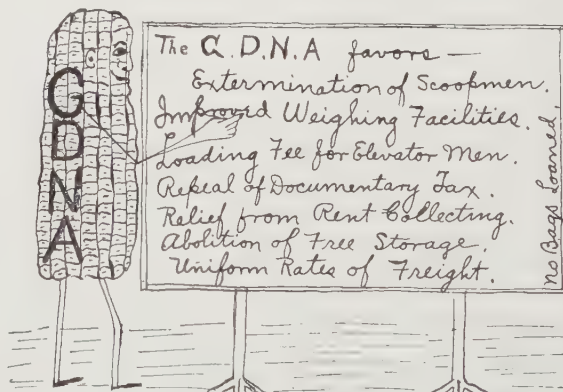 GDNA
The G.D.N.A favors —
Extermination of Scoopmen.
Improved Weighing Facilities.
Loading Fee for Elevator Men.
Repeal of Documentary Tax.
Relief from Rent Collecting.
Abolition of Free Storage.
Uniform Rates of Freight.
No Bags Loaned.